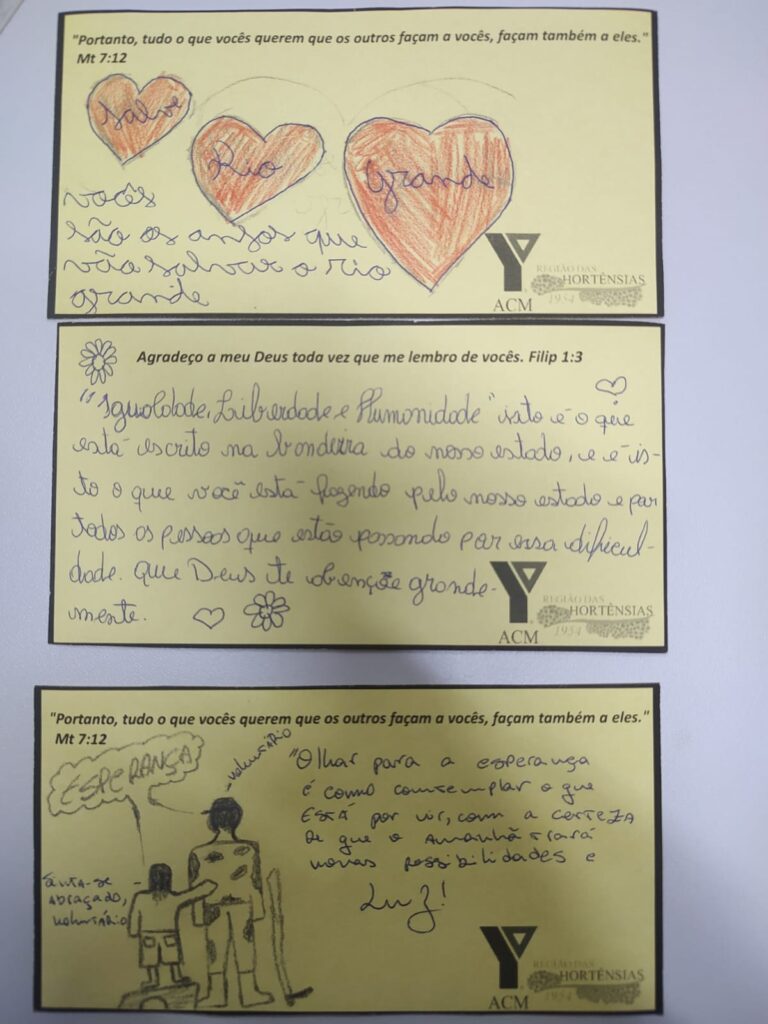 "Portanto, tudo o que vocês querem que os outros façam a vocês, façam também a eles."
Mt 7:12
Salve
Rio
Grande
vocês
são os anjos que
vão salvar o rio
grande
REGIÃO DAS
HORTÊNSIAS
1954
ACM
Agradeço a meu Deus toda vez que me lembro de vocês. Filip 1:3
"Igualdade, Liberdade e Humanidade" isto é o que
está escrito na bandeira do nosso estado, e é is-
to o que você está fazendo pelo nosso estado e por
todos os pessoas que estão passando por essa dificul-
dade. Que Deus te abençõe grande-
mente.
REGIÃO DAS
HORTÊNSIAS
1954
ACM
"Portanto, tudo o que vocês querem que os outros façam a vocês, façam também a eles."
Mt 7:12
ESPERANÇA
voluntário
"Olhar para a esperança
é como contemplar o que
ESTÁ por vir, com a certeza
de que o Amanhã trará
novas possibilidades e
Luz!
Sinta-se
abraçado,
voluntário
REGIÃO DAS
HORTÊNSIAS
1954
ACM